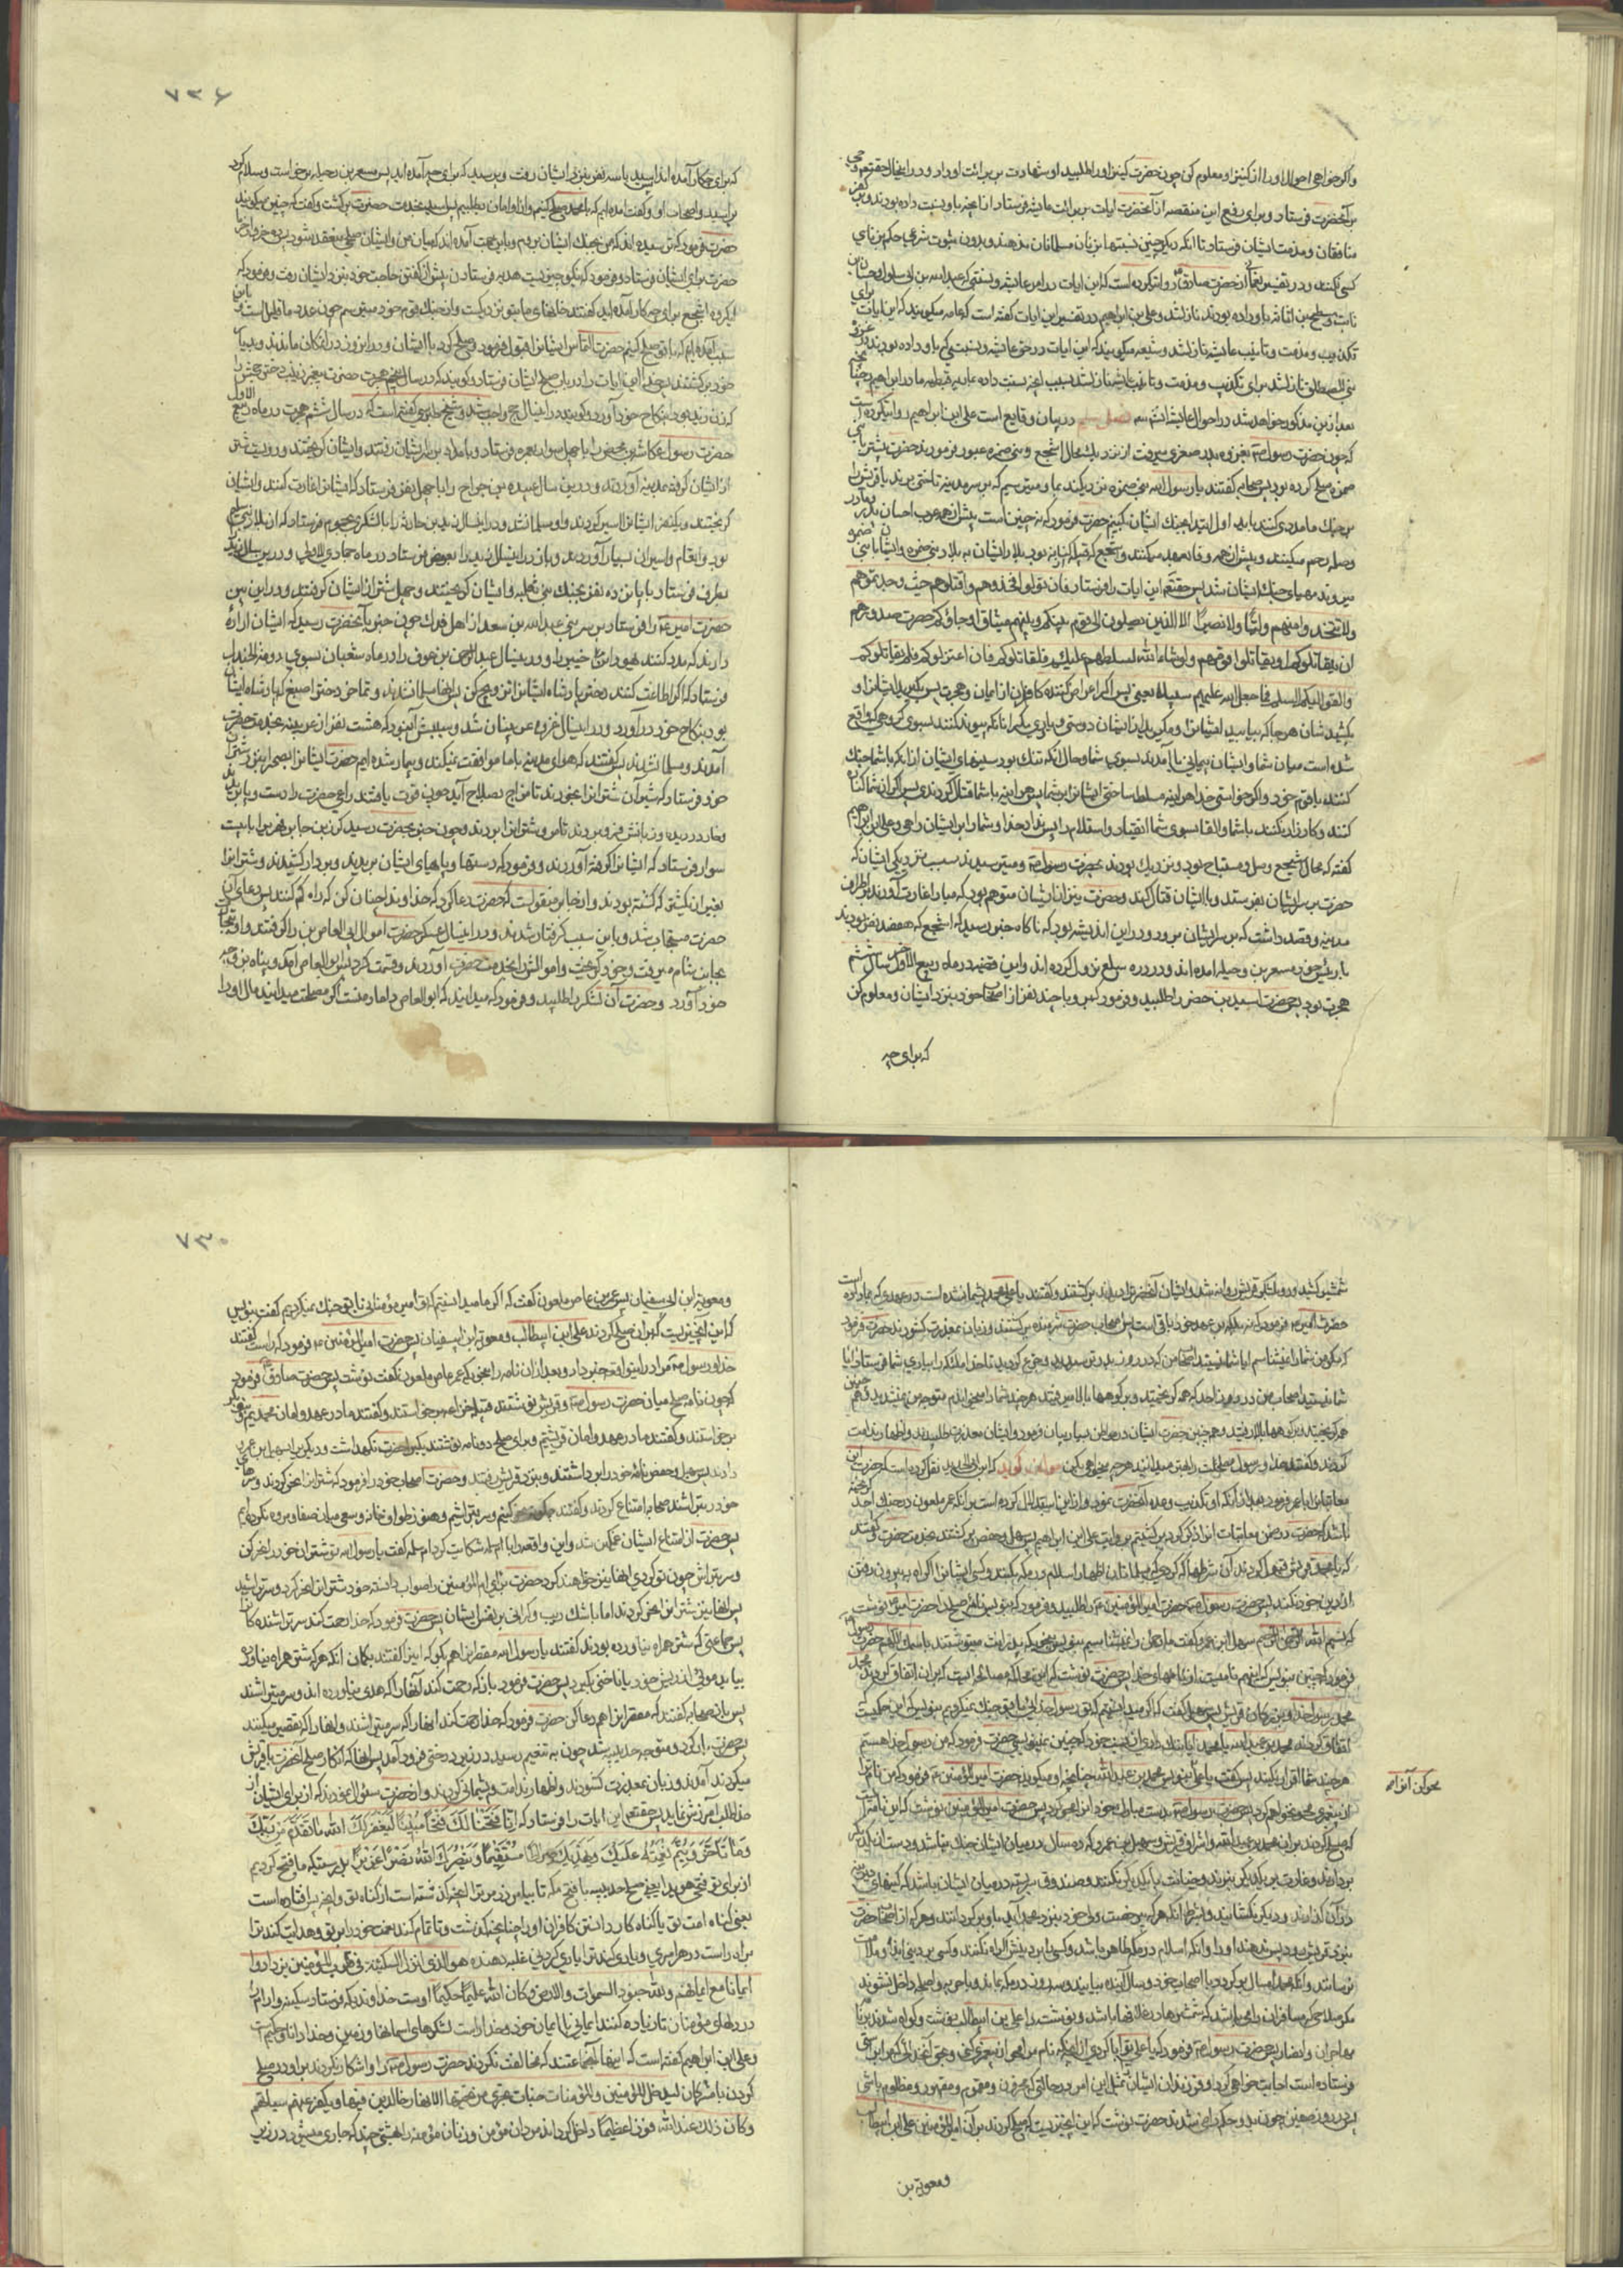 ۷۲۶
واکر خواهی احوال او را از کنیز او معلوم کن چون حضرت کنیز او را طلبید او شهادت بر برائت او داد و در اینحال حقتعالی
بر آنحضرت فرستاد و برای رفع این منقصه از آنحضرت ایات برائت عایشه فرستاد از آنچه باو نسبت داده بودند
منافقان و مذمت ایشان فرستاد تا آنکه دیکر چنین نسبتها بزنان مسلمانان ندهند و بدون ثبوت شرعی حکم بر زنای
کسی نکنند و در تفسیر نعمانی از حضرت صادق روایت کرده است که این ایات در امر عایشه و نسبتی که عبدالله بن ابی سلول و حسان بن
ثابت و مسطح بن اثاثه باو داده بودند نازل شد و علی بن ابراهیم در تفسیر این ایات کفته است که عامه میکویند که این ایات برای
تکذیب و مذمت و تانیب عایشه نازل شد و شیعه میکویند که این ایات در حق عایشه و نسبتی که باو داده بودند در غزوه
بنی المصطلق نازل شد برای تکذیب و مذمت و تانیب عایشه نازل شد بسبب آنچه نسبت داده بماریه قبطیه مادر ابراهیم چنانچه
بعد ازین مذکور خواهد شد در احوال عایشه انشاء الله فصل سیم در بیان وقایع است علی ابن ابراهیم روایت کرده است
که چون حضرت رسول بغزوه بدر صغری میرفت از نزدیک محال اشجع و بنی ضمره عبور فرمودند حضرت پیشتر با بنی
ضمره صلح کرده بود پس صحابه کفتند یا رسول الله بنی ضمره نزدیکند بما و میترسیم که بر سر مدینه تاختی برند یا قریش را
بر جنک ما مددی کنند باید اول ابتدا بجنک ایشان کنیم حضرت فرمود که نه چنین است پیش از همه عرب احسان بپدر و مادر
وصله رحم میکنند و پیش از همه وفا بعهد میکنند و اشجع که قبیله از کنانه بود بلاد ایشان به بلاد بنی ضمره
میروند مهیای جنک ایشان شد پس حقتعالی این ایات را فرستاد فان تولوا فخذوهم واقتلوهم حیث وجدتموهم
ولا تتخذوا منهم ولیا ولا نصیرا الا الذین یصلون الی قوم بینکم وبینهم میثاق او جاؤکم حصرت صدورهم
ان یقاتلوکم او یقاتلوا قومهم ولو شاء الله لسلطهم علیکم فلقاتلوکم فان اعتزلوکم فلم یقاتلوکم
والقوا الیکم السلم فما جعل الله لکم علیهم سبیلا یعنی پس اکر اعراض کننده کافران از ایمان و هجرت پس بکیرید ایشانرا و
بکشیدشان هرجا که بیابید ایشانرا و مکیرید از ایشان دوستی و نه یاری مکر آنانکه پیوند کنند بسوی کروهی که واقع
شده است میان شما و ایشان پیمانی یا آمدند بسوی شما و حال آنکه تنک بود سینهای ایشان از آنکه با شما جنک
کنند یا با قوم خود و اکر خواستی خدا هر آینه مسلط ساختی ایشانرا بر شما پس هر آینه با شما قتال کردندی پس اکر از شما کناره
کنند و کارزار نکنند با شما و القا بسوی شما انقیاد و استسلام را پس نداد خدا و شما را بر ایشان راهی و علی ابن ابراهیم
کفته که محال اشجع وسل ومستباح بود و نزدیک بودند بحضرت رسول و میترسیدند بسبب نزدیکی ایشان که
حضرت بر سر ایشان بفرستد و با ایشان قتال کند و حضرت نیز از ایشان متوهم بود که مبادا غارت آورند بر اطراف
مدینه و قصد داشت که بر سر ایشان برود و در این اندیشه بود که ناکاه خبر رسید که اشجع که هفصد نفر بودند
با رئیس خود مسعر بن رحیله آمده اند و در دره سلع نزول کرده اند و این قضیه در ماه ربیع الاول سال ششم
هجرت بود پس حضرت اسید بن حضیر را طلبید و فرمود که برو با چند نفر از اصحاب خود بنزد ایشان و معلوم کن
که برای چه
که برای چکار آمده اند اسید با سه نفر بنزد ایشان رفت و پرسید که برای چه آمده اید پس مسعر بن رحیله برخاست و سلام کرد
بر اسید و اصحاب او و کفت آمده ایم که با محمد صلح کنیم و از او امان بطلبیم پس اسید بخدمت حضرت برکشت و کفت که چنین میکویند
حضرت فرمود که ترسیده اند که من بجنک ایشان بروم و باین جهت آمده اند که میان من و ایشان صلحی منعقد شود
حضرت برای ایشان فرستاد و فرمود که نیکو چیزیست هدیه فرستادن پیش از کفتن حاجت خود بنزد ایشان رفت و فرمود که
ایکروه اشجع برای چه کار آمده اید کفتند خانهای ما بتو نزدیکست و از جنک با قوم خود میترسیم چون عدد ما قلیل است باین
سبب آمده ایم که با تو صلح کنیم حضرت التماس ایشانرا قبول فرمود و صلح کرد با ایشان و در آن روز در آن مکان ماندند
خود برکشتند پس خدا این ایات را در باب صلح ایشان فرستاد و کویند که در سال پنجم هجرت حضرت پیغمبر زینب دختر جحش را
که زن زید بود بنکاح خود آورد و کویند در اینسال حج واجب شد و شیخ طبرسی کفته است که در سال ششم هجرت در ماه ربیع الاول
حضرت رسول عکاشه بن محصن را با چهل سوار بغمره فرستاد و بامداد بر سر ایشان رفتند و ایشان کریختند و دویست شتر
از ایشان کرفته بمدینه آوردند و در این سال ابو عبیده بن جراح را با چهل نفر فرستاد که ایشانرا غارت کنند و ایشان
کریختند و یکنفر ایشانرا اسیر کردند و او مسلمان شد و در اینسال زید بن حارثه را با لشکری بجموم فرستاد که از بلاد بنی سلیم
بود و انعام و اسیران بسیار آوردند و باز در اینسال زید را بعیص فرستاد در ماه جمادی الاولی و در این سال زید
بطرف فرستاد با پانزده نفر بجنک بنی ثعلبه و ایشان کریختند و چهل شتر از ایشان کرفتند و در این بین
حضرت امیر را فرستاد بر سر بنی عبدالله بن سعد از اهل فدک چون خبر بآنحضرت رسید که ایشان اراده
دارند که مدد کنند یهودان خیبر را و در اینسال عبدالرحمن بن عوف را در ماه شعبان بسوی دومة الجندل
فرستاد که اکر اطاعت کنند دختر پادشاه ایشانرا تزویج کن پس آنها مسلمان شدند و تماضر دختر اصبغ که پادشاه ایشان
بود بنکاح خود درآورد و در اینسال غزوه عرینیان شد و سببش آن بود که هشت نفر از عرینه بخدمت حضرت
آمدند و مسلمان شدند پس کفتند که هوای مدینه با ما موافقت نمیکند و بیمار شده ایم حضرت ایشانرا بصحرا بنزد شتران
خود فرستاد که شیر آن شترانرا بخورند تا مزاج بصلاح آید چون قوت یافتند راعی حضرت را دست و پا بریدند
و خار در دیده و زبانش فرو بردند تا مرد و شترانرا بردند و چون خبر بحضرت رسید کرز بن جابر فهری را با بیست
سوار فرستاد که ایشانرا کرفته آوردند و فرمود که دستها و پاهای ایشان بریدند و بر دار کشیدند و شترانرا
بغیر از یک شتر که کشته بودند و از جابر منقول است که حضرت دعا کرد که خداوندا چنان کن که راه کم کنند پس دعای آن
حضرت مستجاب شد و باین سبب کرفتار شدند و در اینسال عسکر حضرت اموال ابی العاص بن ربیع را کرفتند و او بتجارت
بجانب شام میرفت و خود کریخت و اموالش را بخدمت حضرت آوردند و قسمت کرد پس ابوالعاص آمد و پناه بزوجه
خود آورد و حضرت آن لشکر را طلبید و فرمود که میدانید که ابوالعاص داماد منست اکر مصلحت میدانید مال او را
۷۳۰
شمشیر کشید و رو بلشکر قریش روانه شد و ایشان آنحضرت را دیدند برکشتند و کفتند یا علی محمد پشیمان شده است در عهدی که بما داده است
حضرت امیر فرمود که نه بلکه بر عهد خود باقی است پس اصحاب حضرت شرمنده برکشتند و زبان معذرت کشودند حضرت فرمود
که مکر من شما را نمیشناسم ایا شما نیستید اصحاب من که در روز بدر ترسیدید و جزع کردید تا خدا ملائکه را بیاری شما فرستاد ایا
شما نیستید اصحاب من در روز احد که همه کریختید و بر کوهها بالا میرفتید هرچند شما را میخواندم متوجه من نشدید و در حنین هم
همه کریختید و بر کوهها بالا رفتید و همچنین حضرت ایشان مواطن بسیار بیان فرمود و ایشان معذرت طلبیدند و اظهار ندامت
کردند و کفتند خدا و رسول مصلحت را بهتر میدانند هرچه میخواهی بکن مؤلف کوید که ابن ابی الحدید نقل کرده است که حضرت این
معاتبات را با عمر فرمود بعد از آنکه او تکذیب وعده آنحضرت نمود و از این استدلال کرده است بر آنکه عمر ملعون در جنک احد کریخته
باشد که حضرت در ضمن معاتبات آنرا ذکر کرد پس برکشتیم بروایت علی ابن ابراهیم پس سهیل و حفص برکشتند بخدمت حضرت کفتند
که یا محمد قریش قبول کردند آن شرطها را که کردی که مسلمانان اظهار اسلام در مکه بکنند و کسی ایشانرا اکراه به بیرون رفتن
از دین خود نکند پس حضرت رسول حضرت امیر المؤمنین را طلبید و فرمود که بنویس نامه صلح را حضرت امیر نوشت
که بسم الله الرحمن الرحیم سهیل ابن عمرو کفت ما رحمن را نمیشناسیم بنویس بنحوی که پدرانت مینوشتند باسمک اللهم حضرت رسول
فرمود که چنین بنویس که اینهم نامیست از نامهای خدا پس حضرت نوشت که این محاکمه و مصالحه ایست که بران اتفاق کردند محمد
محمد رسول الله و بزرکان قریش پس سهیل کفت که اکر میدانستیم که تو رسول خدائی با تو جنک نمیکردیم بنویس که این حکمیست
اتفاق کردند محمد بن عبدالله یا محمد ایا ننک داری از نسب خود که چنین نمینویسی حضرت فرمود که من رسول خدا هستم
هرچند شما اقرار نکنید پس کفت یا علی بنویس محمد بن عبدالله چنانچه او میکوید حضرت امیر المؤمنین فرمود که من نام ترا
از پیغمبری محو نخواهم کرد پس حضرت رسول بدست مبارک خود آنرا محو کرد پس حضرت امیر المؤمنین نوشت که این نامه ایست
که صلح کردند بران محمد بن عبدالله و اشراف قریش و سهیل بن عمرو که ده سال در میان ایشان جنک نباشد و دست از یکدیکر
بردارند و غارت بر یکدیکر نبرند و خیانت با یکدیکر نکنند و صندوق سربسته در میان ایشان باشد که کینهای دیرینه
در آن کذارند و دیکر نکشایند و بشرط آنکه هرکه بی رخصت ولی خود بنزد محمد آید باو برکردانند و هرکه از اصحاب حضرت
بنزد قریش رود پس ندهند او را و آنکه اسلام در مکه ظاهر باشد و کسی را بر دینش اکراه نکنند و کسی بر دینی ایذا و ملامت
نرسانند و آنکه محمد امسال برکردد با اصحاب خود و سال آینده بیایند و سه روز در مکه بماند و با حربه و اسلحه داخل نشوند
مکر سلاحی که مسافران را میباشد که شمشیرها در غلافها باشد و نوشت را علی بن ابیطالب نوشت و کواه شدند بر آن
مهاجران و انصار پس حضرت رسول فرمود که یا علی تو ابا کردی از آنکه نام مرا محو کنی از پیغمبری بحق آن خدائی که مرا بحق
فرستاده است اجابت خواهی کرد او فرزندان ایشان بمثل این امر در حالتی که محزون و مغموم و مقهور و مظلوم باشی
پس در روز صفین چون بدو حکم راضی شدند حضرت نوشت که این چیزیست که صلح کردند بر آن امیر المؤمنین علی ابن ابیطالب
و معویة بن
و معویة ابن ابی سفیان پس عمرو بن عاص ملعون کفت که اکر ما میدانستیم که تو امیر مؤمنانی با تو جنک نمیکردیم کفت بنویس
که این آنچیزیست که بران صلح کردند علی ابن ابیطالب و معویة ابن ابیسفیان پس حضرت امیر المؤمنین فرمود که راست کفتند
خدا و رسول مرا در این واقعه خبر داد و بعد از آن نامه را بنحوی که عمر عاص ملعون کفت نوشت پس حضرت صادق فرمود
که چون نامه صلح میان حضرت رسول و قریش نوشتند قبیله خزاعه برخواستند و کفتند ما در عهد و امان محمدیم و بنی بکر
برخواستند و کفتند ما در عهد و امان قریشیم و برای صلح دو نامه نوشتند یکی را حضرت نکهداشت و دیکری را سهیل ابن عمرو
دادند پس سهیل و حفص نامه خود را برداشتند و بنزد قریش رفتند و حضرت اصحاب خود را فرمود که شترانرا نحر کردند و سرهای
خود را بتراشند صحابه امتناع کردند و کفتند چکونه نحر کنیم و سر بتراشیم و هنوز طواف خانه و سعی میان صفا و مروه نکرده ایم
پس حضرت از امتناع ایشان غمکین شد و این واقعه را بام سلمه شکایت کرد ام سلمه کفت یا رسول الله تو شتران خود را نحر کن
و سر بتراش چون تو کردی آنها نیز خواهند کرد حضرت رای ام المؤمنین را صواب دانسته خود شترانرا نحر کرد و سر تراشید
پس آنها نیز شترانرا نحر کردند اما با شک و ریب و کرانی بر نفس ایشان پس حضرت فرمود که خدا رحمت کند سر تراشنده کانرا
پس جماعتی که شتر همراه نیاورده بودند کفتند یا رسول الله مقصرانرا هم بکو که اینرا کفتند بکمان آنکه هرکه شتر همراه نیاورد
بیاید موئی از ریش خود یا ناخنی بکیرد پس حضرت فرمود باز که رحمت کند آنها را که هدی نیاورده اند و سر میتراشند
پس باز صحابه کفتند که مقصرانرا هم دعا کن حضرت فرمود که خدا رحمت کند آنها را که سر میتراشند و آنها را که تقصیر میکنند
پس حضرت بار کرد و متوجه مدینه شد چون به تنعیم رسید در زیر درختی فرود آمد پس آنها که انکار صلح آنحضرت با قریش
میکردند آمدند و زبان بمعذرت کشودند و اظهار ندامت و پشیمانی کردند و از حضرت سئوال نمودند که از برای ایشان از
خدا طلب آمرزش نماید پس حقتعالی این ایات را فرستاد که انا فتحنا لک فتحا مبینا لیغفر لک الله ما تقدم من ذنبک
وما تاخر ویتم نعمته علیک ویهدیک صراطا مستقیما وینصرک الله نصرا عزیزا بدرستیکه ما فتح کردیم
از برای تو فتحی هویدا یعنی صلح حدیبیه یا فتح مکه تا بیامرزد بر ترا آنچه کذشته است از کناه تو و آنچه پس افتاده است
یعنی کناه امت تو یا کناه کار دانستن کافران او را چنانچه کذشت و تا تمام کند نعمت خود را بر تو و هدایت کند ترا
براه راست در هر امری و یاری کند ترا یاری کردنی غلبه دهنده هو الذی انزل السکینة فی قلوب المؤمنین لیزدادوا
ایمانا مع ایمانهم ولله جنود السموات والارض وکان الله علیما حکیما اوست خداوندیکه فرستاد سکینه و آرام را
در دلهای مؤمنان تا زیاده کنند ایمانی با ایمان خود و خدا راست لشکرهای اسمانها و زمین و خدا دانا و حکیم است
و علی ابن ابراهیم کفته است که اینها آنجماعتند که مخالفت نکردند حضرت رسول را و انکار نکردند بر او در صلح
کردن با مشرکان لیدخل المؤمنین والمؤمنات جنات تجری من تحتها الانهار خالدین فیها ویکفر عنهم سیئاتهم
وکان ذلک عندالله فوزا عظیما تا داخل کرداند مردان مؤمن و زنان مؤمنه را بهشتی چند که جاری میشود در زیر